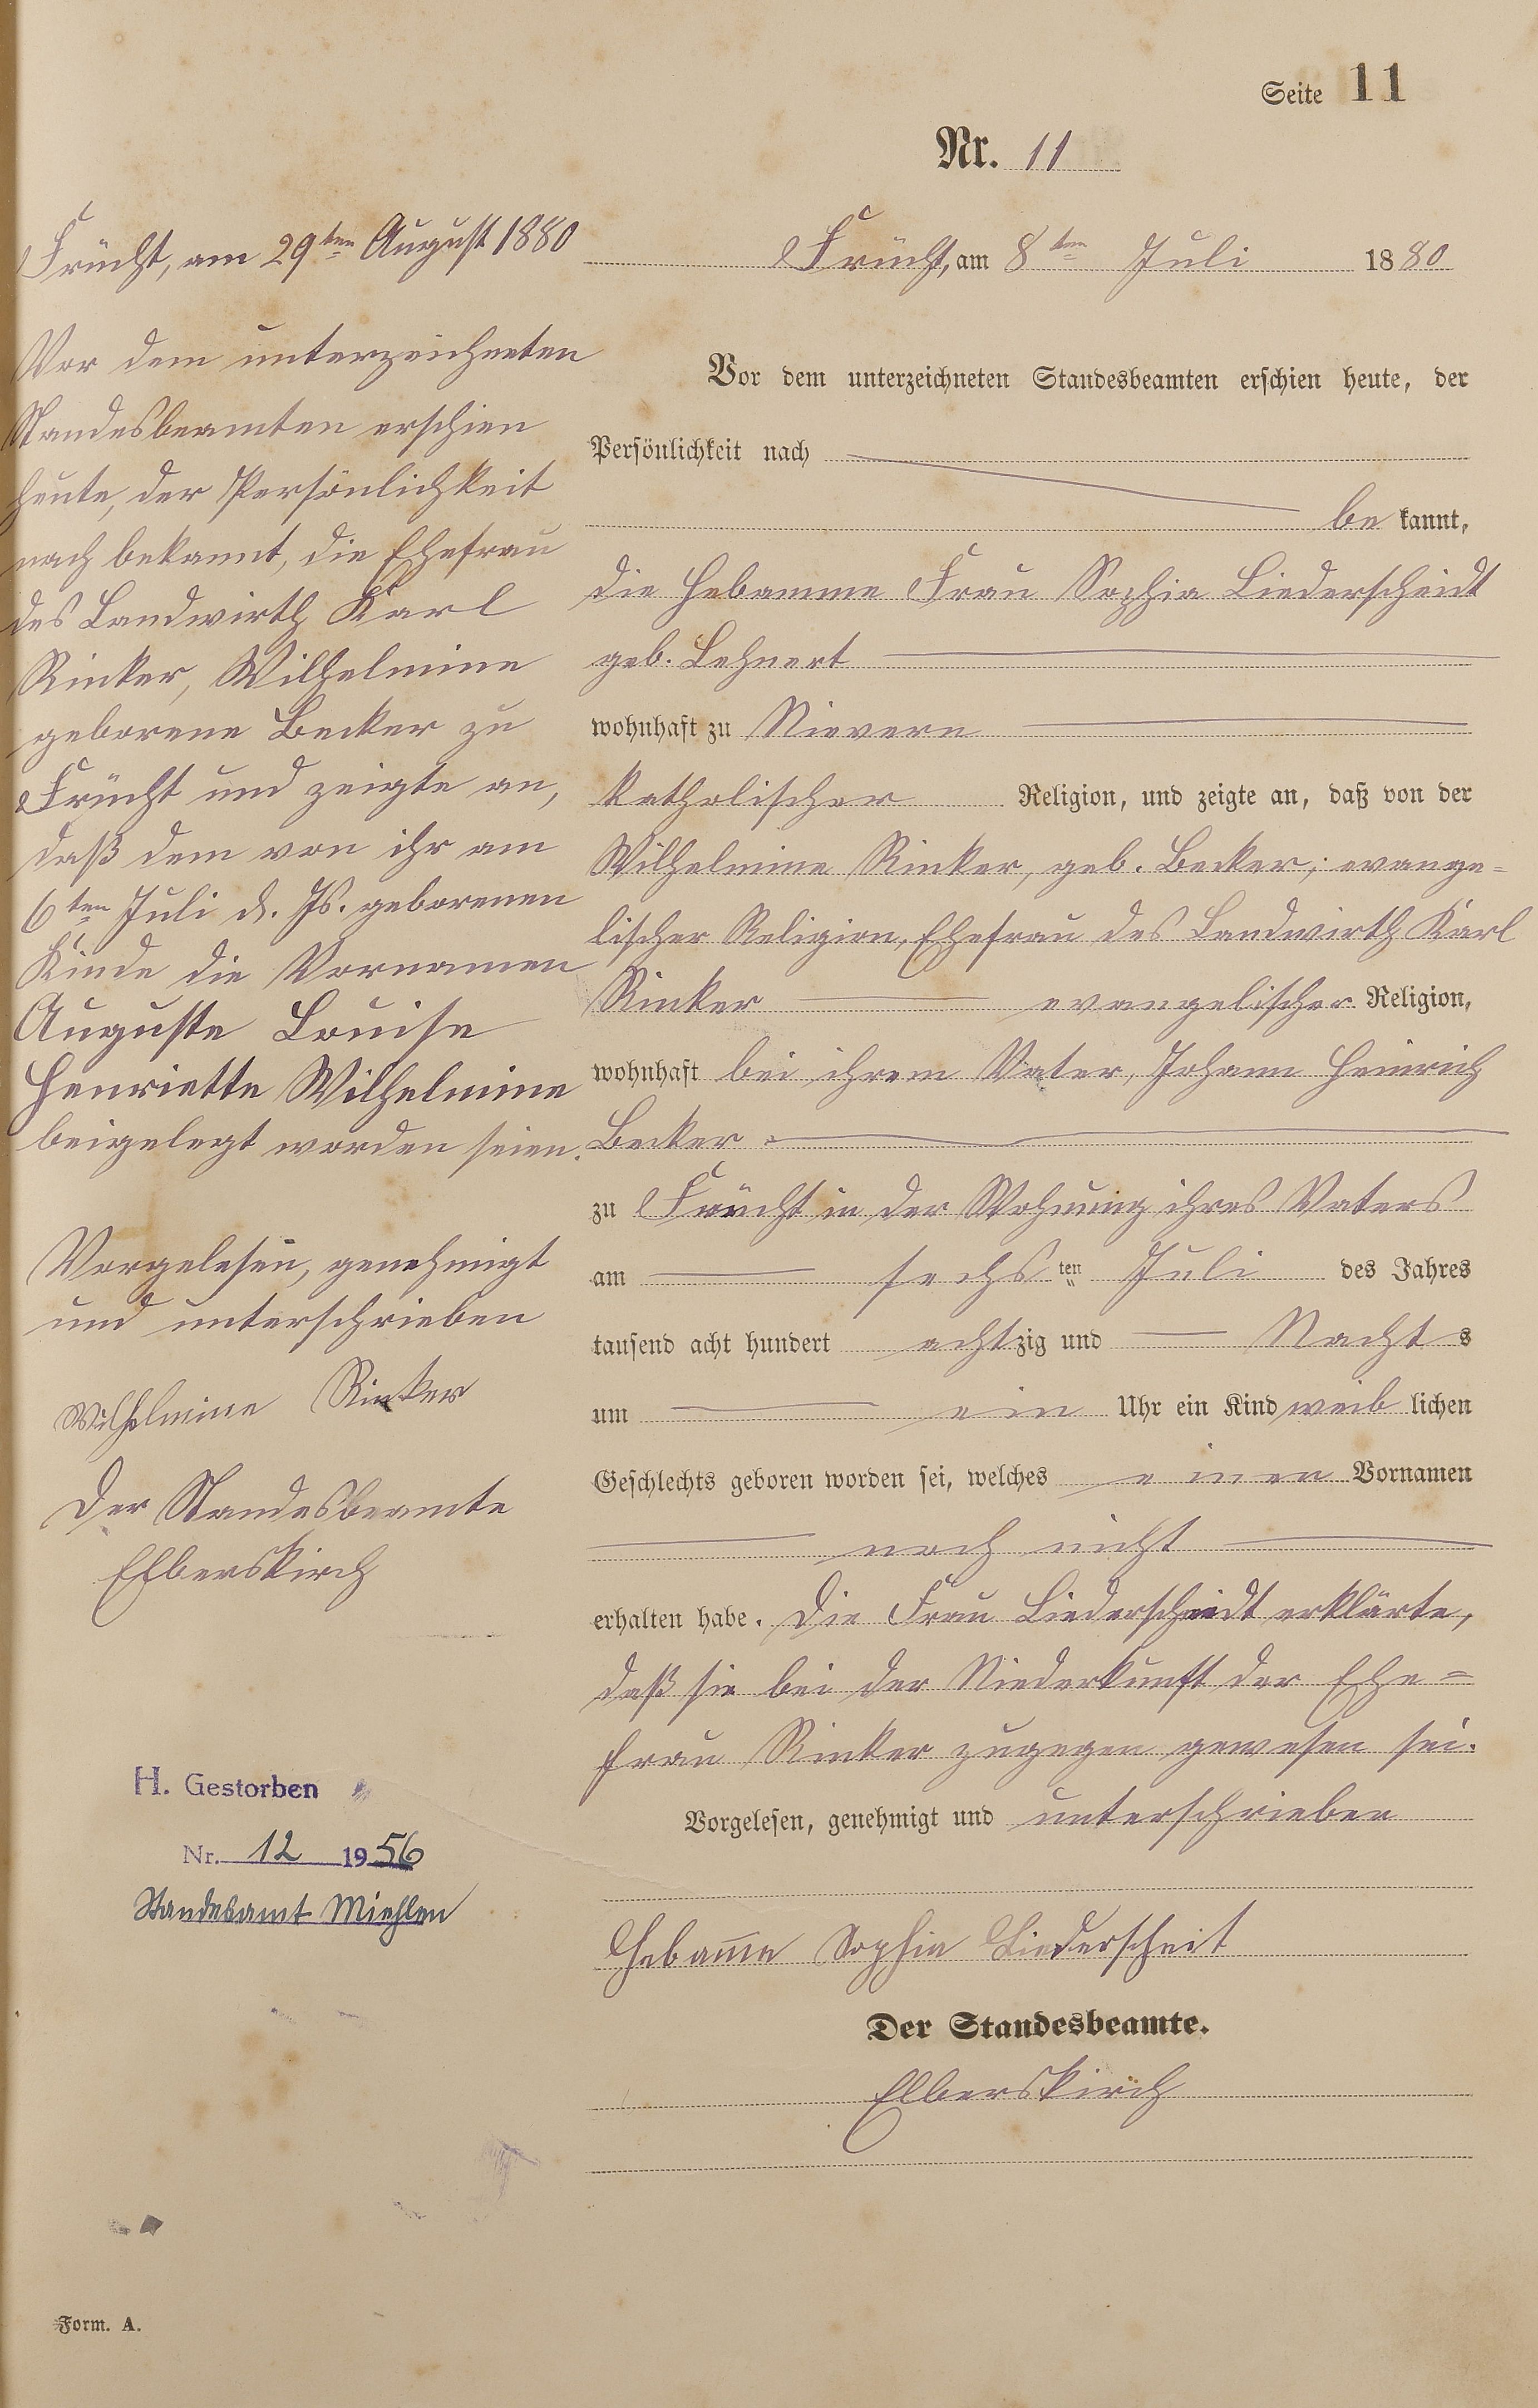 Seite 11
Nr. 11
Frücht, am 29ten August 1880
Vor dem unterzeichneten
Standesbeamten erschien
heute, der Persönlichkeit
nach bekannt, die Ehefrau
des Landwirth Karl
Rinker, Wilhelmine
geborene Becker zu
Frücht und zeigte an,
daß dem von ihr am
6ten Juli d. Js. geborenen
Kinde die Vornamen
Auguste Louise
Henriette Wilhelmine
beigelegt worden seien.
Vorgelesen, genehmigt
und unterschrieben
Wilhelmine Rinker
Der Standesbeamte
Elberskirch
H. Gestorben
Nr. 12 1956
Standesamt Miehlen
Frücht, am 8ten Juli 1880
Vor dem unterzeichneten Standesbeamten erschien heute, der
Persönlichkeit nach
be kannt,
die Hebamme Frau Sophia Liederscheidt
geb. Lehnert
wohnhaft zu Nievern
katholischer Religion, und zeigte an, daß von der
Wilhelmine Rinker, geb. Becker, evange=
lischer Religion, Ehefrau des Landwirth Karl
Rinker evangelischer Religion,
wohnhaft bei ihrem Vater, Johann Heinrich
Becker
zu Frücht in der Wohnung ihres Vaters
am sechsten Juli des Jahres
tausend acht hundert achtzig und Nachts
um ein Uhr ein Kind weiblichen
Geschlechts geboren worden sei, welches einen Vornamen
noch nicht
erhalten habe. Die Frau Liederscheidt erklärte,
daß sie bei der Niederkunft der Ehe=
frau Rinker zugegen gewesen sei.
Vorgelesen, genehmigt und unterschrieben
Hebamme Sophia Liederscheit
Der Standesbeamte.
Elberskirch
Form. A.